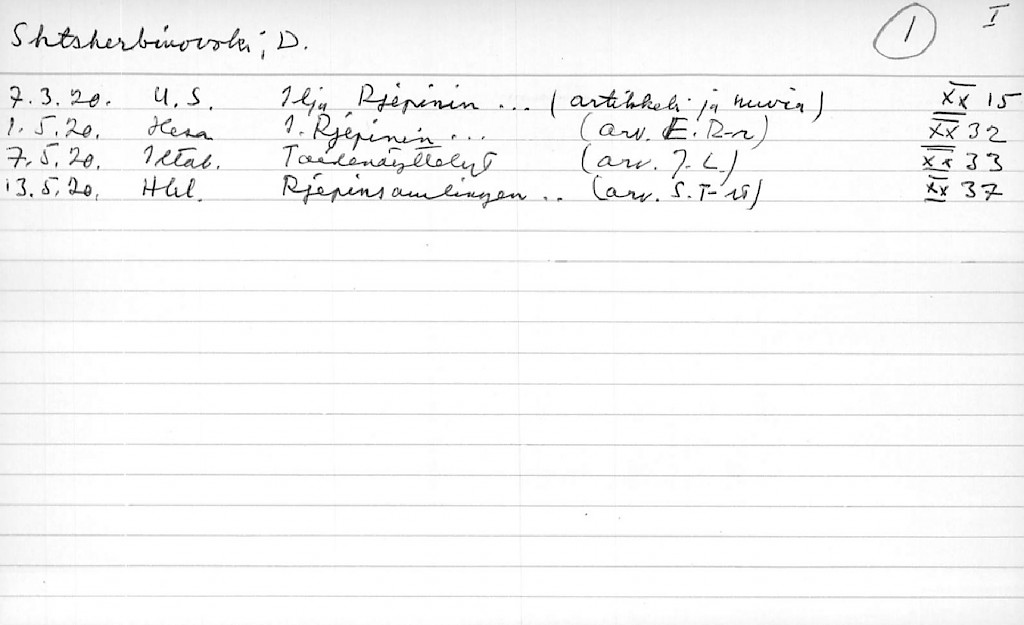 ① I
Shtsherbinovski, D.
7.3.20. U.S. Ilja Rjépinin ... (artikkeli ja kuvia) XX 15
1.5.20. Hesa I. Rjépinin ... (arv. E. R-r) XX 32
7.5.20. Iltal. Taidenäyttelyt (arv. J. L.) XX 33
13.5.20. Hbl. Rjépinsamlingen .. (arv. S. T-ll) XX 37